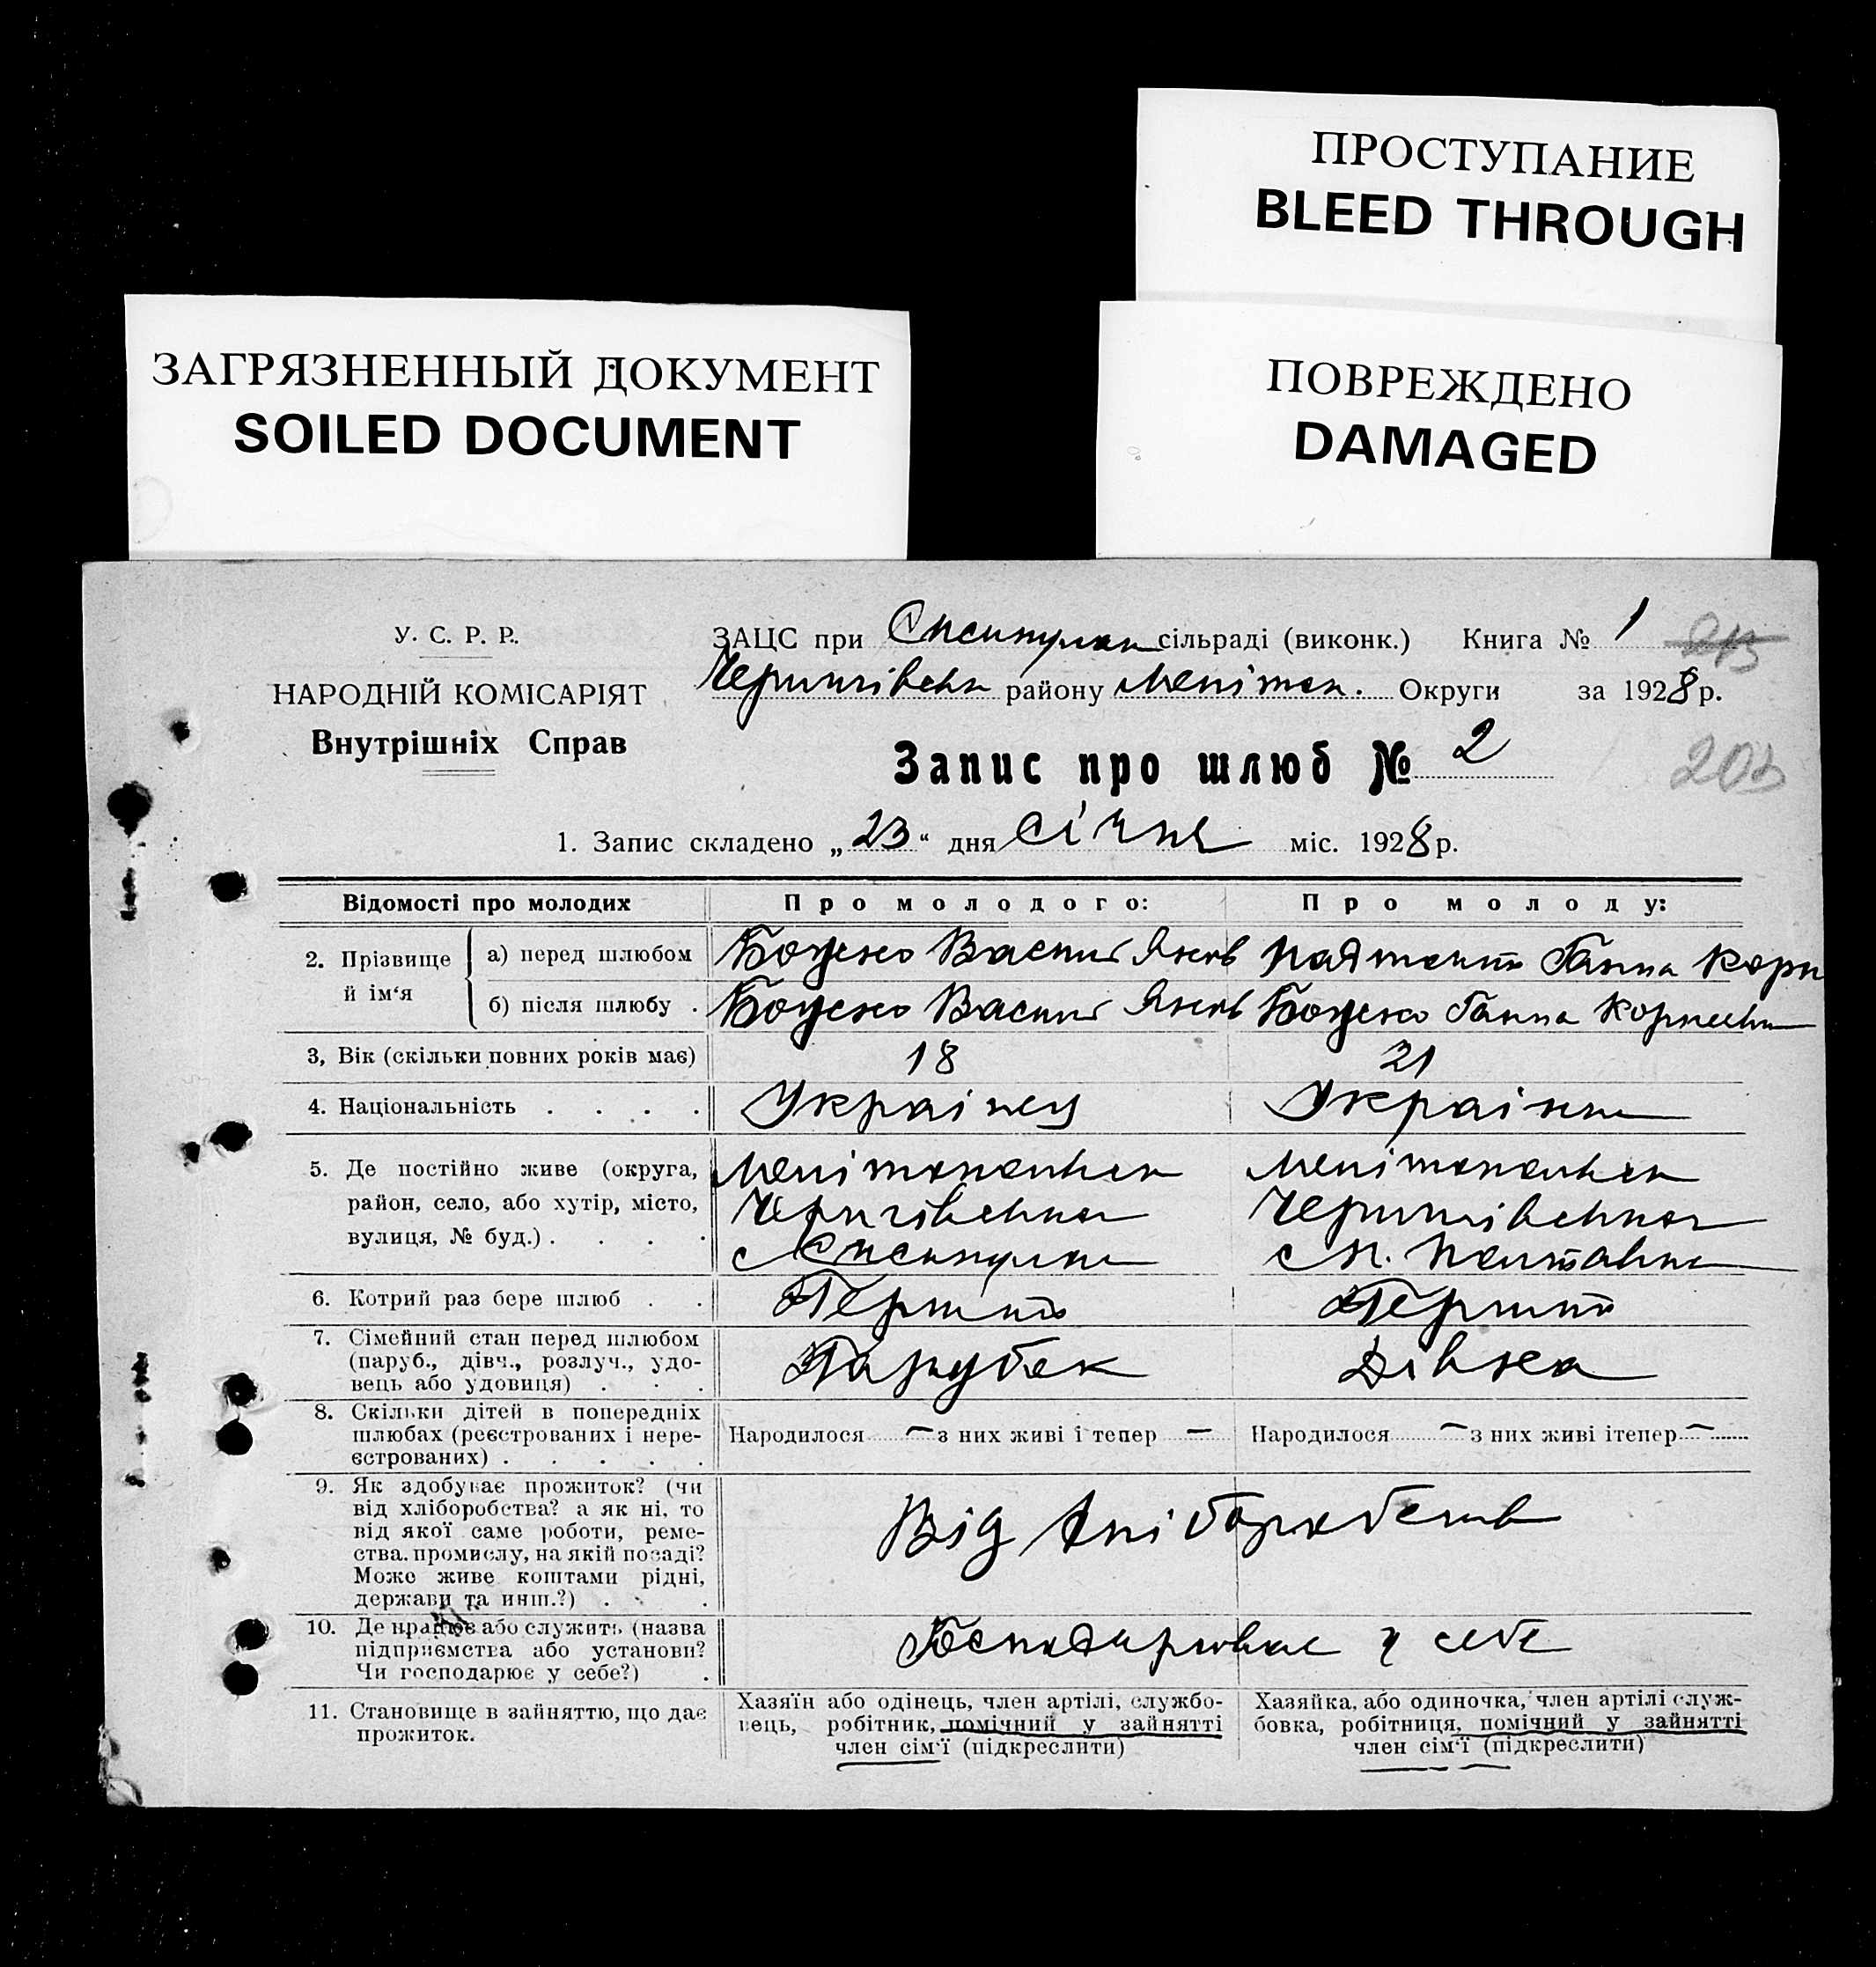 ПРОСТУПАНИЕ
BLEED THROUGH
ЗАГРЯЗНЕННЫЙ ДОКУМЕНТ
SOILED DOCUMENT
ПОВРЕЖДЕНО
DAMAGED
У. С. Р. Р.
НАРОДНІЙ КОМІСАРІЯТ
Внутрішніх Справ
ЗАЦС при сільраді (виконк.) Книга № 1
Чернигівськ району Меліток. Округи за 1928 р.
Запис про шлюб № 2
203
1. Запис складено „23" дня січня міс. 1928 р.
Відомості про молодих Про молодого: Про молоду:
2. Прізвище й ім'я
а) перед шлюбом Василь Яков Ганна Корн
б) після шлюбу . Василь Яков Ганна Корнеевн
3, Вік (скільки повних років має) 18 21
4. Національність . . . . Українец Українка
5. Де постійно живе (округа,
район, село, або хутір, місто,
вулиця, № буд.) . . . .
6. Котрий раз бере шлюб . . Перший Перший
7. Сімейний стан перед шлюбом
(паруб., дівч., розлуч., удо-
вець або удовиця) . . . Парубок Дівка
8. Скільки дітей в попередніх
шлюбах (реєстрованих і нере-
єстрованих) . . . . .
Народилося — з них живі і тепер — Народилося — з них живі ітепер —
9. Як здобуває прожиток? (чи
від хліборобства? а як ні, то
від якої саме роботи, реме-
ства, промислу, на якій посаді?
Може живе коштами рідні,
держави та инш.?) . . .
Від хліборобств
10. Де працює або служить (назва
підприємства або установи?
Чи господарює у себе?) .
у себе
11. Становище в зайняттю, що дає
прожиток.
Хазяїн або одінець, член артілі, службо-
вець, робітник, помічний у зайнятті
член сім'ї (підкреслити)
Хазяйка, або одиночка, член артілі служ-
бовка, робітниця, помічний у зайнятті
член сім'ї (підкреслити)